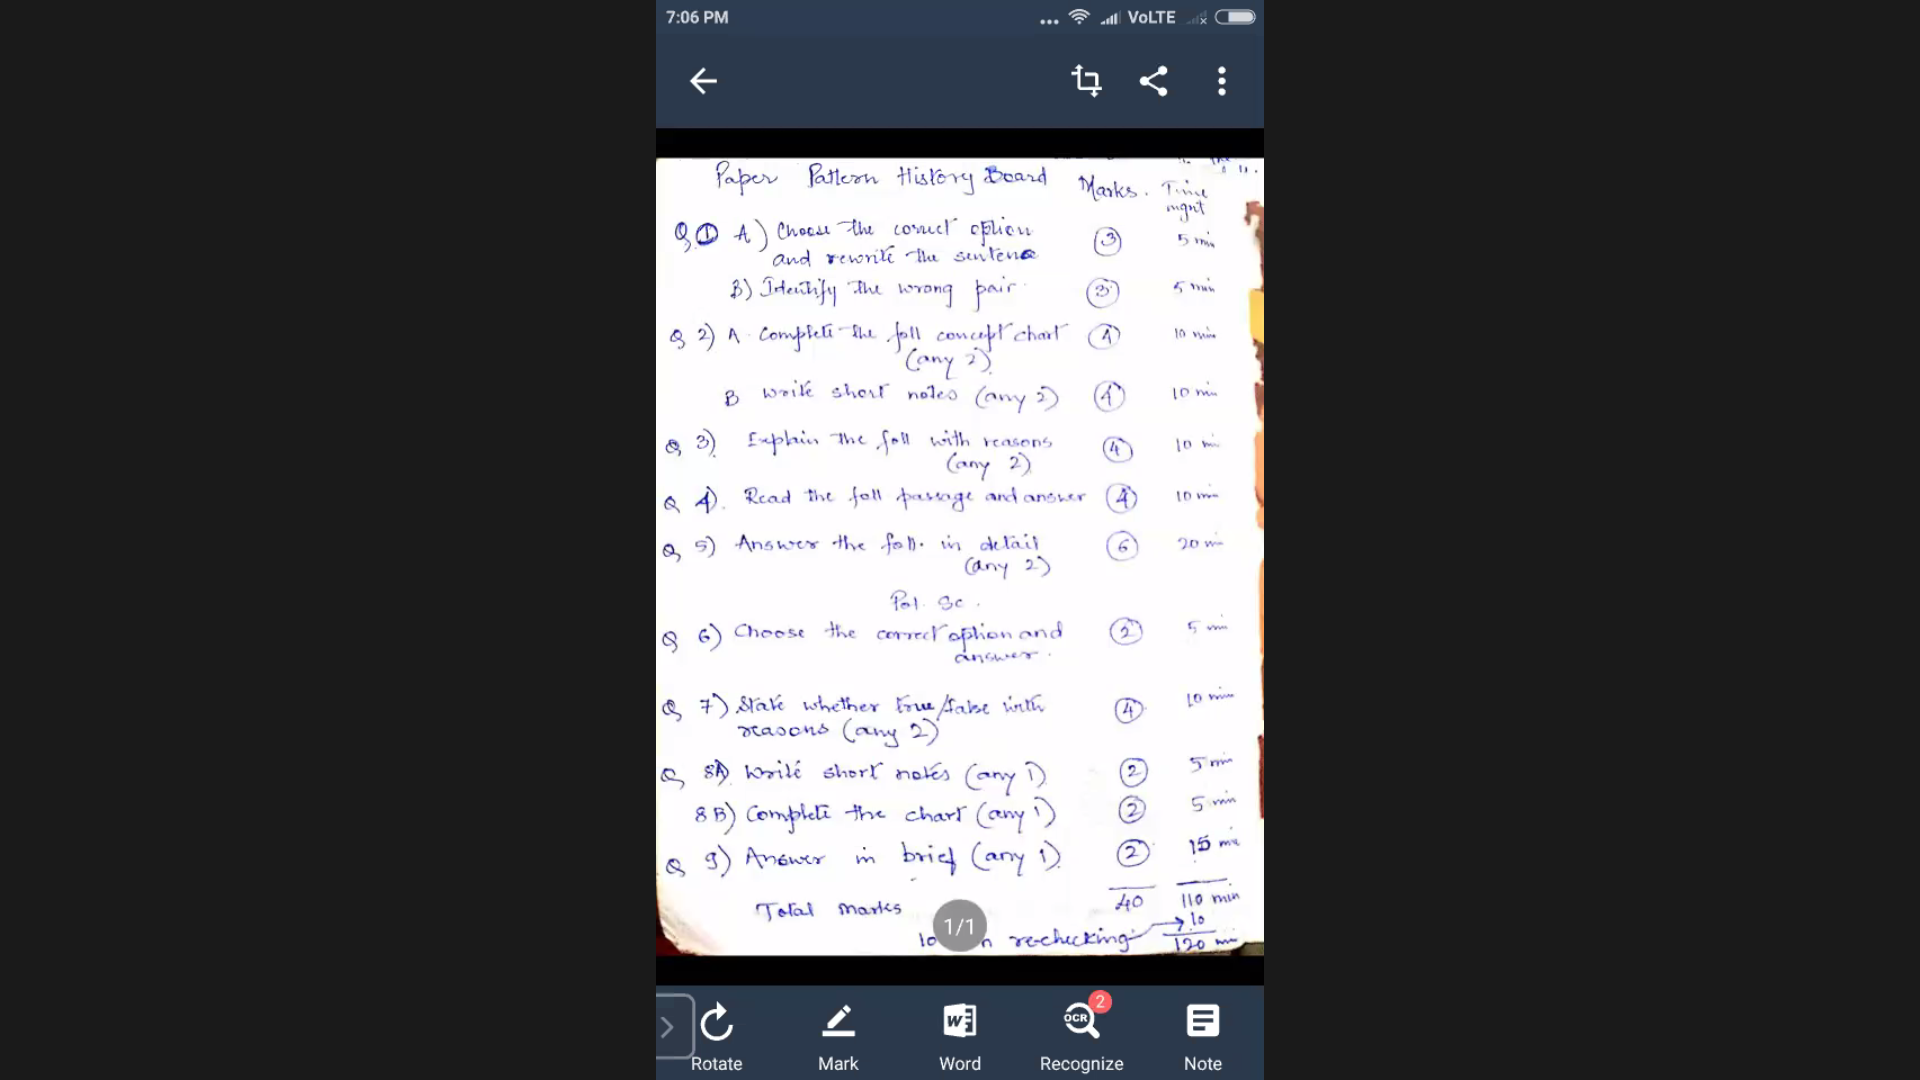 7:06 PM
VoLTE
Paper Pattern History Board Marks. Time mgnt
Q 1 A) Choose the correct option 3 5 min
and rewrite the sentence
B) Identify the wrong pair. 3 5 min
Q 2) A Complete the foll concept chart 4 10 min
(any 2).
B Write short notes (any 2) 4 10 min
Q 3) Explain the foll with reasons 4 10 mi
(any 2)
Q 4). Read the foll passage and answer 4 10 min
Q 5) Answer the foll. in detail 6 20 min
(any 2)
Pol. Sc.
Q 6) Choose the correct option and 2 5 min
answer.
Q 7) State whether true/false with 4 10 min
reasons (any 2)
Q 8A) Write short notes (any 1) 2 5 min
8B) Complete the chart (any 1) 2 5 min
Q 9) Answer in brief (any 1). 2 15 min
Total Marks 40 110 min
1/1
10 re-checking → 10
120 min
Rotate
Mark
Word
OCR 2
Recognize
Note